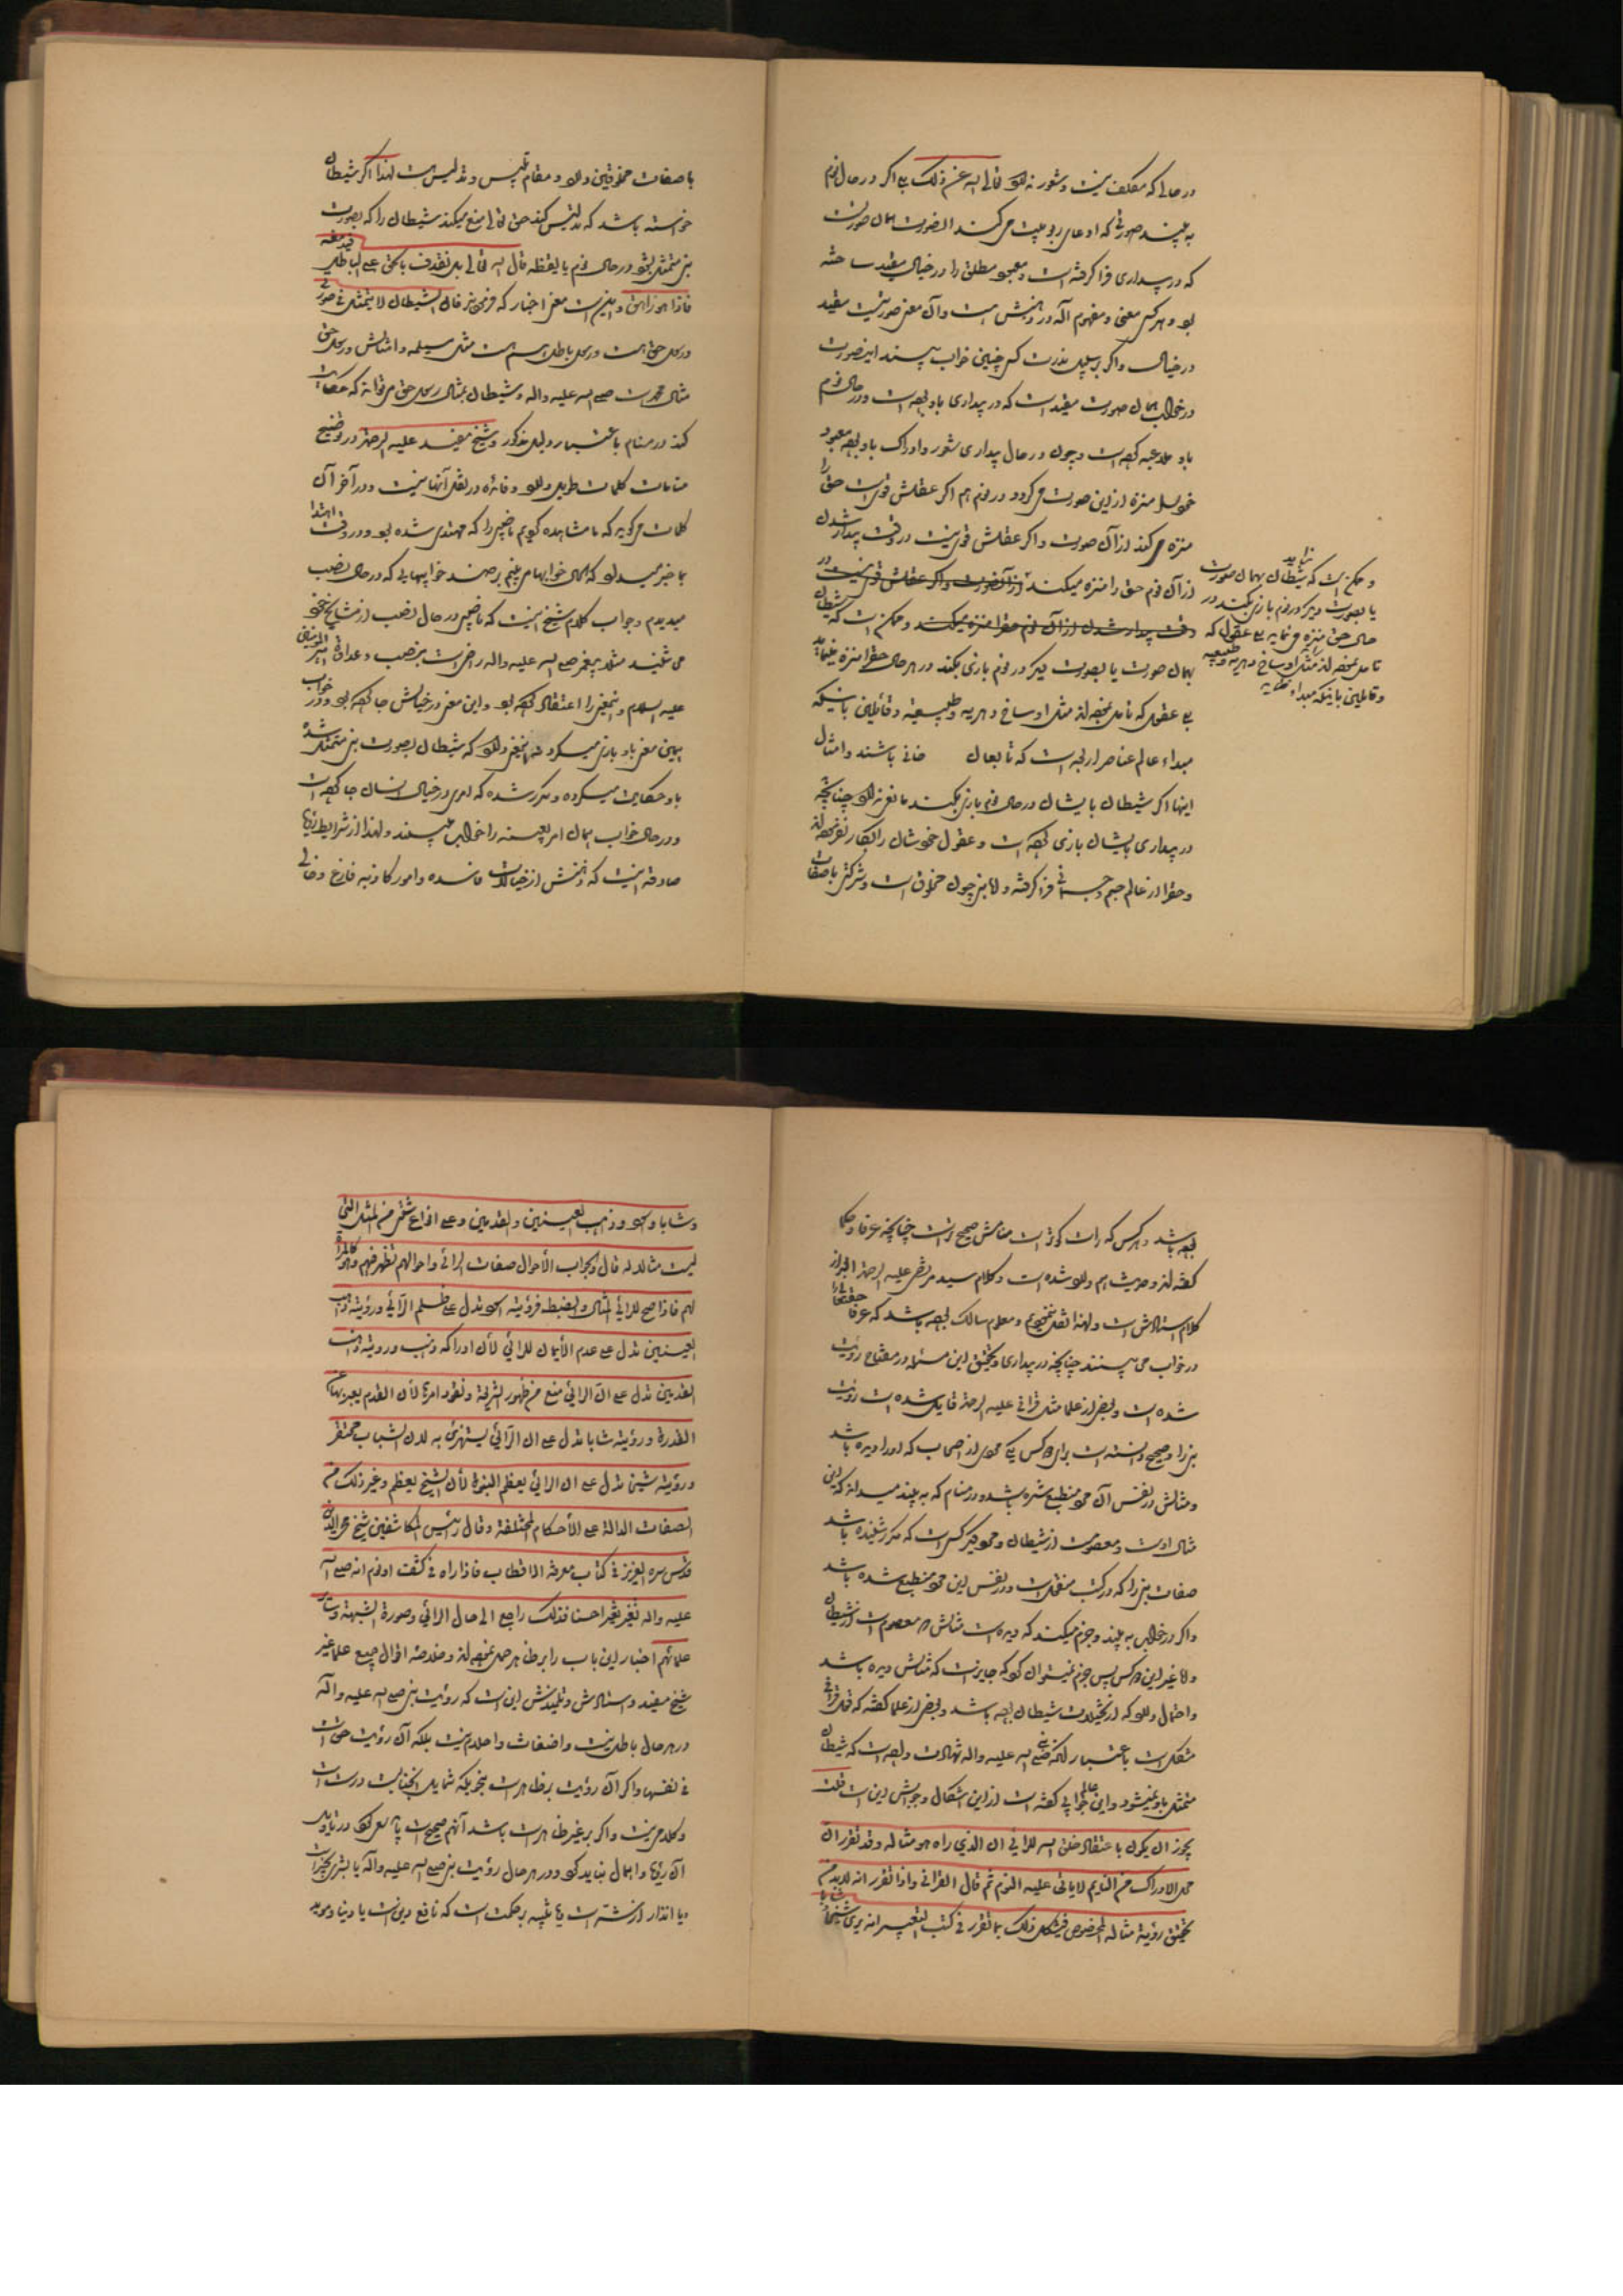 در حالی که مکلف نیست و شعور ندارد تعالی الله عن ذلک بلی اگر در حال نوم
به بیند صورتی که ادعای ربوبیت می کند الصورت همان صورت
که در بیداری فرا گرفته است و معبود مطلق را در خیال مقید ساخته
بود و هر کس معنی و مفهوم آله در ذهنش هست و آن معنی صورتیست مقید
در خیال و اگر بر سبیل ندرت کسی چنین خواب ببیند این صورت
در خواب همان صورت مقید است که در بیداری با او بوده است و در حال نوم
با و بوده است و چون در حال بیداری شعور و ادراک با و بوده معبود
خود را منزه از این صورت می گردد در نوم هم اگر عقلش قوی است حق را
منزه می کند از آن صورت و اگر عقلش قوی نیست در وقت بیدار شدن
از آن نوم حق را منزه میکند از آن صورت و اگر عقلش قوی نیست در
وقت بیدار شدن از آن نوم حق را منزه میکند و ممکن است که شیطان
بهمان صورت یا بصورت دیگر در نوم بازی بکند در هر حال حق را منزه مینماید
بلی عقولی که تأمل نکرده اند مثل اوساخ دهریه و طبیعیه و قائلین باینکه
مبداء عالم عناصر اربعه است که تابعان فانی باشند و امثال
اینها اگر شیطان با یشان در حال نوم بازی بکند مانعی ندارد چنانچه
در بیداری بایشان بازی کرده است و عقول خودشان را انکار نموده اند
و حق را از عالم جسم و جسمانی فرا گرفته و لا نبی چون مخلوق است و شرکتی با صفات
و ممکن است که شیطان بهمان صورت نباید
یا بصورت دیگر در نوم بازی بکند در
حال حق منزه می نماید بلی عقولی که
تأمل نکرده اند مثل اوساخ دهریه و طبیعیه
و قائلین باینکه مبداء
با صفات مخلوقین دارد و مقام تلبیس و تدلیس هست لهذا اگر شیطان
خواسته باشد که تدلیس کند حق تعالی منع میکند شیطان را که بصورت
نبی متمثل بشود در حال نوم یا یقظه قال الله تعالی بل نقذف بالحق علی الباطل فیدمغه
فاذا هو زاهق و این است معنی اخبار که فرموده نبی فان الشیطان لا یتمثل فی صورتی
و رسول حق است و رسول باطل هم هست مثل مسیلمه و امثالش و رسول حق
مثال محمد است صلی الله علیه و آله و شیطان بمثال رسول حق نمی تواند که حکایت
کند در منام باعتبار دلیل مذکور و شیخ مفید علیه الرحمه در توضیح
منامات کلمات طویل دارد و فائده در نقل آنها نیست و در آخر آن
کلمات می گوید که ما مشاهده کردیم ناصبی را که مهتدی شده بود و در وقت اهتدا
ما خبر میداد که همان خوابها می بینیم بر ضد خوابهایی که در حال نصب
میدیدم و جواب کلام شیخ اینست که ناصبی در حال نصب از مشایخ خود
می شنید مثلا پیغمبر صلی الله علیه و آله راضی است بر نصب و عداوت امیر المؤمنین
علیه السلام و این معنی را اعتقاد کرده بود و این معنی در خیالش جا کرده بود و در خواب
همین معنی با و بازی میکرد نه اینمعنی دارد که شیطان بصورت نبی متمثل شده
با و حکایت میکرده و مکرر شده که امری در خیال انسان جا کرده است
و در حال خواب همان امر بعینه را خواب می بیند و لهذا از شرایط رؤیای
صادقه اینست که ذهنش از خیالات فاسده و امور کاذبه فارغ و خالی
بوده باشد و هر کس که راست گوتر است منامش صحیح تر است چنانچه عرفا و حکما
گفته اند و حدیث هم دارد شده است و کلام سید مرتضی علیه الرحمه ایضا از
کلام استادش است و لهذا نقل ننمودیم و معلوم سالک بوده باشد که عرفا حقتعالی را
در خواب می بینند چنانچه در بیداری و تحقیق این مسئله در مفتاح رؤیت
شده است و بعضی از علما مثل قرافی علیه الرحمه قایل شده است رؤیت
نبی را و صحیح دانسته است برای دو کس یکی صحابی از اصحاب که او را دیده باشد
و مثالش در نفس آن صحابی منطبع شده باشد و در منام که به بیند میداند که این
مثال اوست و معصوم است از شیطان و صحابی دیگر کسی است که مکرر شنیده باشد
صفات نبی را که در کتب منقول است و در نفس این صحابی منطبع شده باشد
و اگر در خواب به بیند و جزم میکند که دیده است مثالش را معصوم است از شیطان
و لا غیر این دو کس پس جزم نمیتوان کرد که جایز است که مثالش دیده باشد
و احتمال دارد که از تخییلات شیطان بوده باشد و بعضی از علما گفته که قول قرافی
مشکل است باعتبار آنکه نبی صلی الله علیه و آله شهادت داده است که شیطان
متمثل باو نمیشود و این عالم جوابی گفته است از این اشکال و جوابش این است قلت
یجوز ان یکون باعتقاد خلق الله للرائی ان الذی راه هو مثاله و قد تقرر ان
محل الادراک من النایم لا یاتی علیه النوم ثم قال القرافی و اذا تقرر انه لابد من
تحقیق رؤیة مثاله المخصوص فیشکل ذلک بما تقرر فی کتب التعبیر انه یری شیخا و شابا
و شابا و اسود و ذاهب العینین و القدمین و علی انواع شتی من المثل التی
لیست مثالا له قال و الجواب الأحوال صفات الرائی و احوالهم تظهر فیهم و هو کالمرآة
لهم فاذا صح للرائی المثال و انضبط فرؤیته اسود تدل علی ظلم الرّائی و رؤیته ذاهب
العینین تدل علی عدم الأیمان للرائی لأن ادراکه ذهب و رؤیته ذاهب
القدمین تدل علی انّ الرائی منع من ظهور الشریعة و نفوذ امرها لأن القدم یعبر بها عن
القدرة و رؤیته شابا تدل علی ان الرّائی یستهزئ به لان الشباب محتقر
و رؤیته شیخا تدل علی ان الرائی یعظم النبوة لأن الشیخ یعظم و غیر ذلک من
الصفات الدالة علی الأحکام المختلفة و قال رئیس المکاشفین شیخ محی الدین
قدس سره العزیز فی کتاب معرفة الاقطاب فاذا راه فی کشف او نوم انه صلی الله
علیه و آله تغیر تغیرا حسنا فذلک راجع الی حال الرائی و صورة الشبهة
علمائهم اخبار این باب را بر ظاهر حمل نموده اند و خلاصه اقوال جمیع علما غیر
شیخ مفید و استادش و تلمیذش این است که رؤیت نبی صلی الله علیه و آله
در هر حال باطل نیست و اضغاث و احلام نیست بلکه آن رؤیت حق است
فی نفسها و اگر آن رؤیت بر ظاهر است بنحویکه شمایل آنجنابست درست است
و کلام نیست و اگر بر غیر ظاهر است باشد آنهم صحیح است
آن رؤیا و اهمال نباید کرد و در هر حال رؤیت نبی صلی الله علیه و آله یا بشری بخیر است
و یا انذار از شر است و یا تنبیه بر حکمت است که نافع دین است یا دنیا